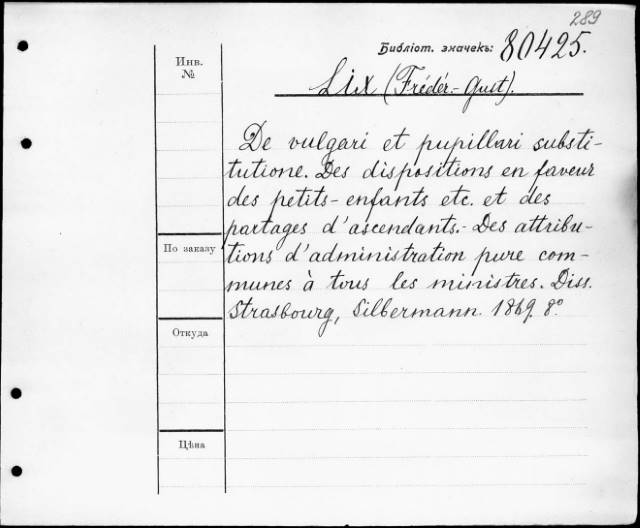 289
Библіот. значекъ: 80425.
Инв.
№
Lix (Frédér.- Gust).
De vulgari et pupillari substi-
tutione. Des dispositions en faveur
des petits-enfants etc. et des
partages d'ascendants.- Des attribu-
По заказу
tions d'administration pure com-
munes à tous les ministres. Diss.
Strasbourg, Silbermann. 1869. 8º
Откуда
Цѣна